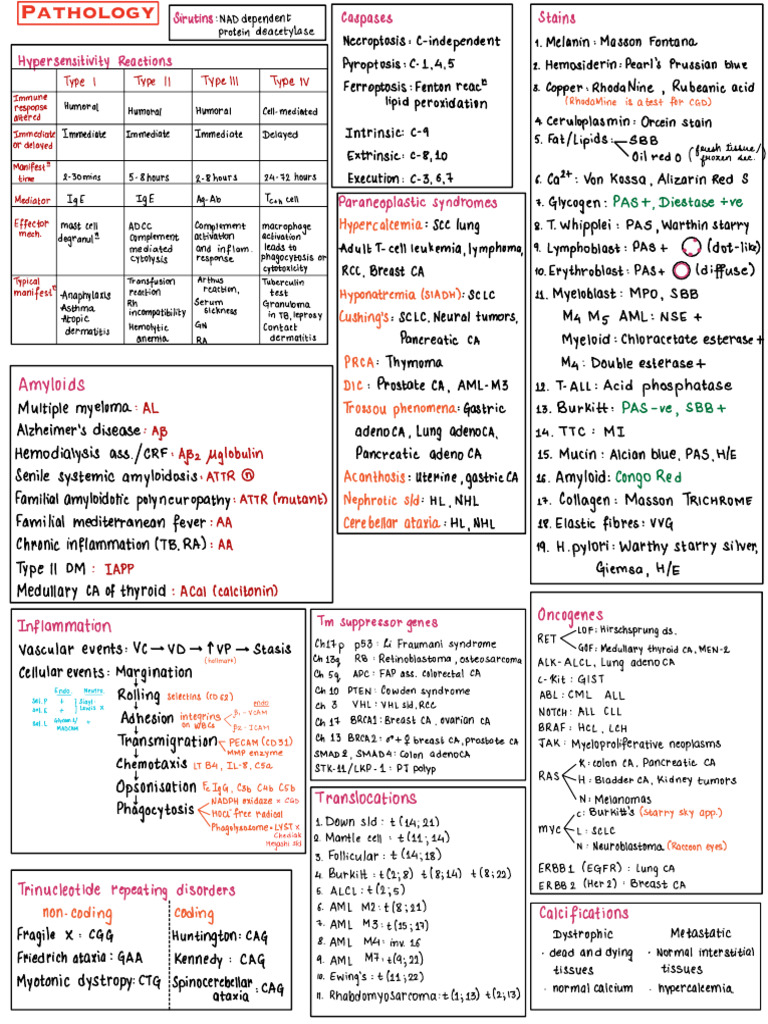 PATHOLOGY
Sirutins: NAD dependent
protein deacetylase
Hypersensitivity Reactions
Type I Type II Type III Type IV
Immune response altered Humoral Humoral Humoral Cell-mediated
Immediate or delayed Immediate Immediate Immediate Delayed
Manifestⁿ time 2-30mins 5-8hours 2-8hours 24-72 hours
Mediator IgE IgE Ag-Ab Tc+h cell
Effector mech. mast cell degranulⁿ ADCC complement mediated cytolysis Complement activation and inflam. response macrophage activation leads to phagocytosis or cytotoxicity
Typical manifestⁿ Anaphylaxis Asthma Atopic dermatitis Transfusion reaction Rh incompatibility Hemolytic anemia Arthus reaction, Serum sickness GN RA Tuberculin test Granuloma in TB, leprosy Contact dermatitis
Amyloids
Multiple myeloma: AL
Alzheimer's disease: Aβ
Hemodialysis ass./CRF: Aβ2 μglobulin
Senile systemic amyloidosis: ATTR ⓝ
Familial amyloidotic polyneuropathy: ATTR (mutant)
Familial mediterranean fever: AA
Chronic inflammation (TB, RA): AA
Type II DM: IAPP
Medullary CA of thyroid: ACal (calcitonin)
Inflammation
Vascular events: VC → VD → ↑VP → Stasis
(hallmark)
Cellular events: Margination
Rolling selectins (CD62)
Adhesion integrins on WBCs
endo
β1-VCAM
β2-ICAM
Transmigration PECAM (CD31)
MMP enzyme
Chemotaxis LTB4, IL-8, C5a
Opsonisation Fc IgG, C3b C4b C5b
Phagocytosis NADPH oxidase = CGD
HOCl⁻ free radical
Phagolysosome = LYST x
Chediak
Heyashi sld
Endo. Neutro.
Sel. P +
Sel. E +
Sialyl Lewis X
Sel. L Glycam 1/ MADCAM +
Trinucleotide repeating disorders
non-coding coding
Fragile X: CGG Huntington: CAG
Friedrich ataxia: GAA Kennedy: CAG
Myotonic dystropy: CTG Spinocerebellar ataxia: CAG
Caspases
Necroptosis: C-independent
Pyroptosis: C-1,4,5
Ferroptosis: Fenton reacⁿ
lipid peroxidation
Intrinsic: C-9
Extrinsic: C-8,10
Execution: C-3,6,7
Paraneoplastic syndromes
Hypercalcemia: SCC lung
Adult T-cell leukemia, lymphoma,
RCC, Breast CA
Hyponatremia (SIADH): SCLC
Cushing's: SCLC, Neural tumors,
Pancreatic CA
PRCA: Thymoma
DIC: Prostate CA, AML-M3
Trossou phenomena: Gastric
adenoCA, Lung adenoCA,
Pancreatic adeno CA
Acanthosis: Uterine, gastric CA
Nephrotic s/d: HL, NHL
Cerebellar ataxia: HL, NHL
Tm suppressor genes
Ch17p p53: Li Fraumani syndrome
Ch 13q RB: Retinoblastoma, osteosarcoma
Ch 5q APC: FAP ass. colorectal CA
Ch 10 PTEN: Cowden syndrome
Ch 3 VHL: VHL sld, RCC
Ch 17 BRCA1: Breast CA, ovarian CA
Ch 13 BRCA2: ♂+♀ breast CA, prostate CA
SMAD2, SMAD4: Colon adenoCA
STK-11/LKP-1: PJ polyp
Translocations
1. Down sld: t(14;21)
2. Mantle cell: t(11;14)
3. Follicular: t(14;18)
4. Burkitt: t(2;8) t(8;14) t(8;22)
5. ALCL: t(2;5)
6. AML M2: t(8;21)
7. AML M3: t(15;17)
8. AML M4: inv. 16
9. AML M7: t(9;21)
10. Ewing's: t(11;22)
11. Rhabdomyosarcoma: t(1;13) t(2;13)
Stains
1. Melanin: Masson Fontana
2. Hemosiderin: Pearl's Prussian blue
3. Copper: RhodaNine, Rubeanic acid
(RhodaMine is a test for CGD)
4. Ceruloplasmin: Orcein stain
5. Fat/Lipids: SBB
Oil red O (fresh tissue/ frozen sec.)
6. Ca²⁺: Von Kossa, Alizarin Red S
7. Glycogen: PAS+, Diestase +ve
8. T. Whipplei: PAS, Warthin starry
9. Lymphoblast: PAS+ (dot-like)
10. Erythroblast: PAS+ (diffuse)
11. Myeloblast: MPO, SBB
M4 M5 AML: NSE +
Myeloid: Chloracetate esterase+
M4: Double esterase+
12. T-ALL: Acid phosphatase
13. Burkitt: PAS-ve, SBB+
14. TTC: MI
15. Mucin: Alcian blue, PAS, H/E
16. Amyloid: Congo Red
17. Collagen: Masson TRICHROME
18. Elastic fibres: VVG
19. H.pylori: Warthy starry silver,
Giemsa, H/E
Oncogenes
RET LOF: Hirschsprung ds.
GOF: Medullary thyroid CA, MEN-2
ALK-ALCL, Lung adenoCA
c-Kit: GIST
ABL: CML ALL
NOTCH: ALL CLL
BRAF: HCL, LCH
JAK: Myeloproliferative neoplasms
RAS K: colon CA, Pancreatic CA
H: Bladder CA, Kidney tumors
N: Melanomas
MYC C: Burkitt's (Starry sky app.)
L: SCLC
N: Neuroblastoma (Raccoon eyes)
ERBB1 (EGFR): Lung CA
ERBB2 (Her2): Breast CA
Calcifications
Dystrophic Metastatic
· dead and dying tissues · Normal interstitial tissues
· normal calcium · hypercalcemia